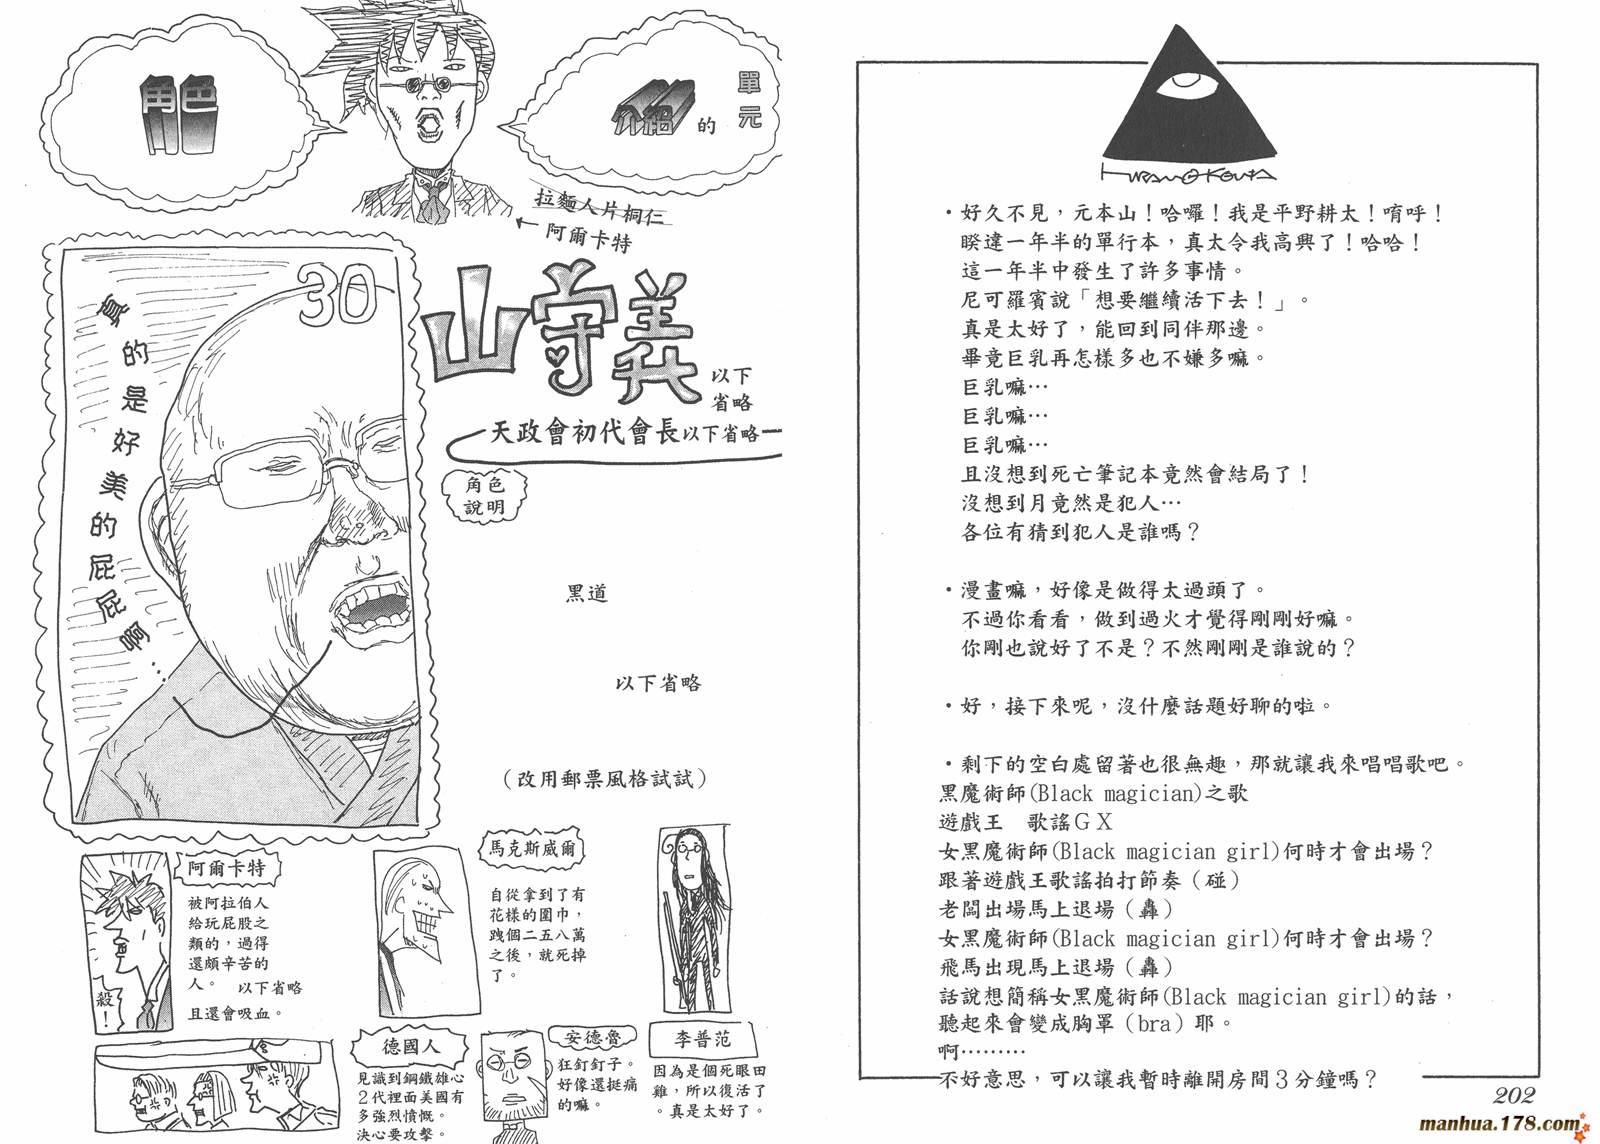 HIRANO KOUTA
・好久不見，元本山！哈囉！我是平野耕太！唷呼！
睽違一年半的單行本，真太令我高興了！哈哈！
這一年半中發生了許多事情。
尼可羅賓說「想要繼續活下去！」。
真是太好了，能回到同伴那邊。
畢竟巨乳再怎樣多也不嫌多嘛。
巨乳嘛…
巨乳嘛…
巨乳嘛…
且沒想到死亡筆記本竟然會結局了！
沒想到月竟然是犯人…
各位有猜到犯人是誰嗎？
・漫畫嘛，好像是做得太過頭了。
不過你看看，做到過火才覺得剛剛好嘛。
你剛也說好了不是？不然剛剛是誰說的？
・好，接下來呢，沒什麼話題好聊的啦。
・剩下的空白處留著也很無趣，那就讓我來唱唱歌吧。
黑魔術師(Black magician)之歌
遊戲王　歌謠ＧＸ
女黑魔術師(Black magician girl)何時才會出場？
跟著遊戲王歌謠拍打節奏（碰）
老闆出場馬上退場（轟）
女黑魔術師(Black magician girl)何時才會出場？
飛馬出現馬上退場（轟）
話說想簡稱女黑魔術師(Black magician girl)的話，
聽起來會變成胸罩（bra）耶。
啊………
不好意思，可以讓我暫時離開房間３分鐘嗎？
202
角色
介紹的
單元
拉麵人片桐仁
←阿爾卡特
30
真的是好美的屁屁啊…
山守義
以下
省略
天政會初代會長以下省略
角色
說明
黑道
以下省略
（改用郵票風格試試）
阿爾卡特
被阿拉伯人
給玩屁股之
類的，過得
還頗辛苦的
人。　以下省略
且還會吸血。
殺！
馬克斯威爾
自從拿到了有
花樣的圍巾，
跩個二五八萬
之後，就死掉
了。
德國人
見識到鋼鐵雄心
２代裡面美國有
多強烈憤慨。
決心要攻擊。
安德魯
狂釘釘子。
好像還挺痛
的嘛。
李普范
因為是個死眼田
雞，所以復活了
。真是太好了。
manhua.178.com